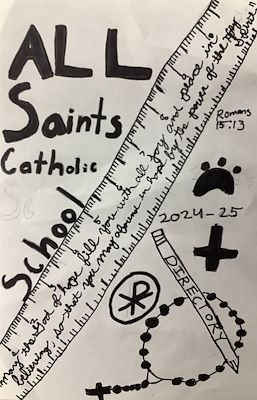 ALL
Saints
Catholic
School
may the God of hope fill you with all joy and peace in
believing, so that you may abound in hope by the power of the Holy Spirit"
Romans
15:13
2024-25
DIRECTORY